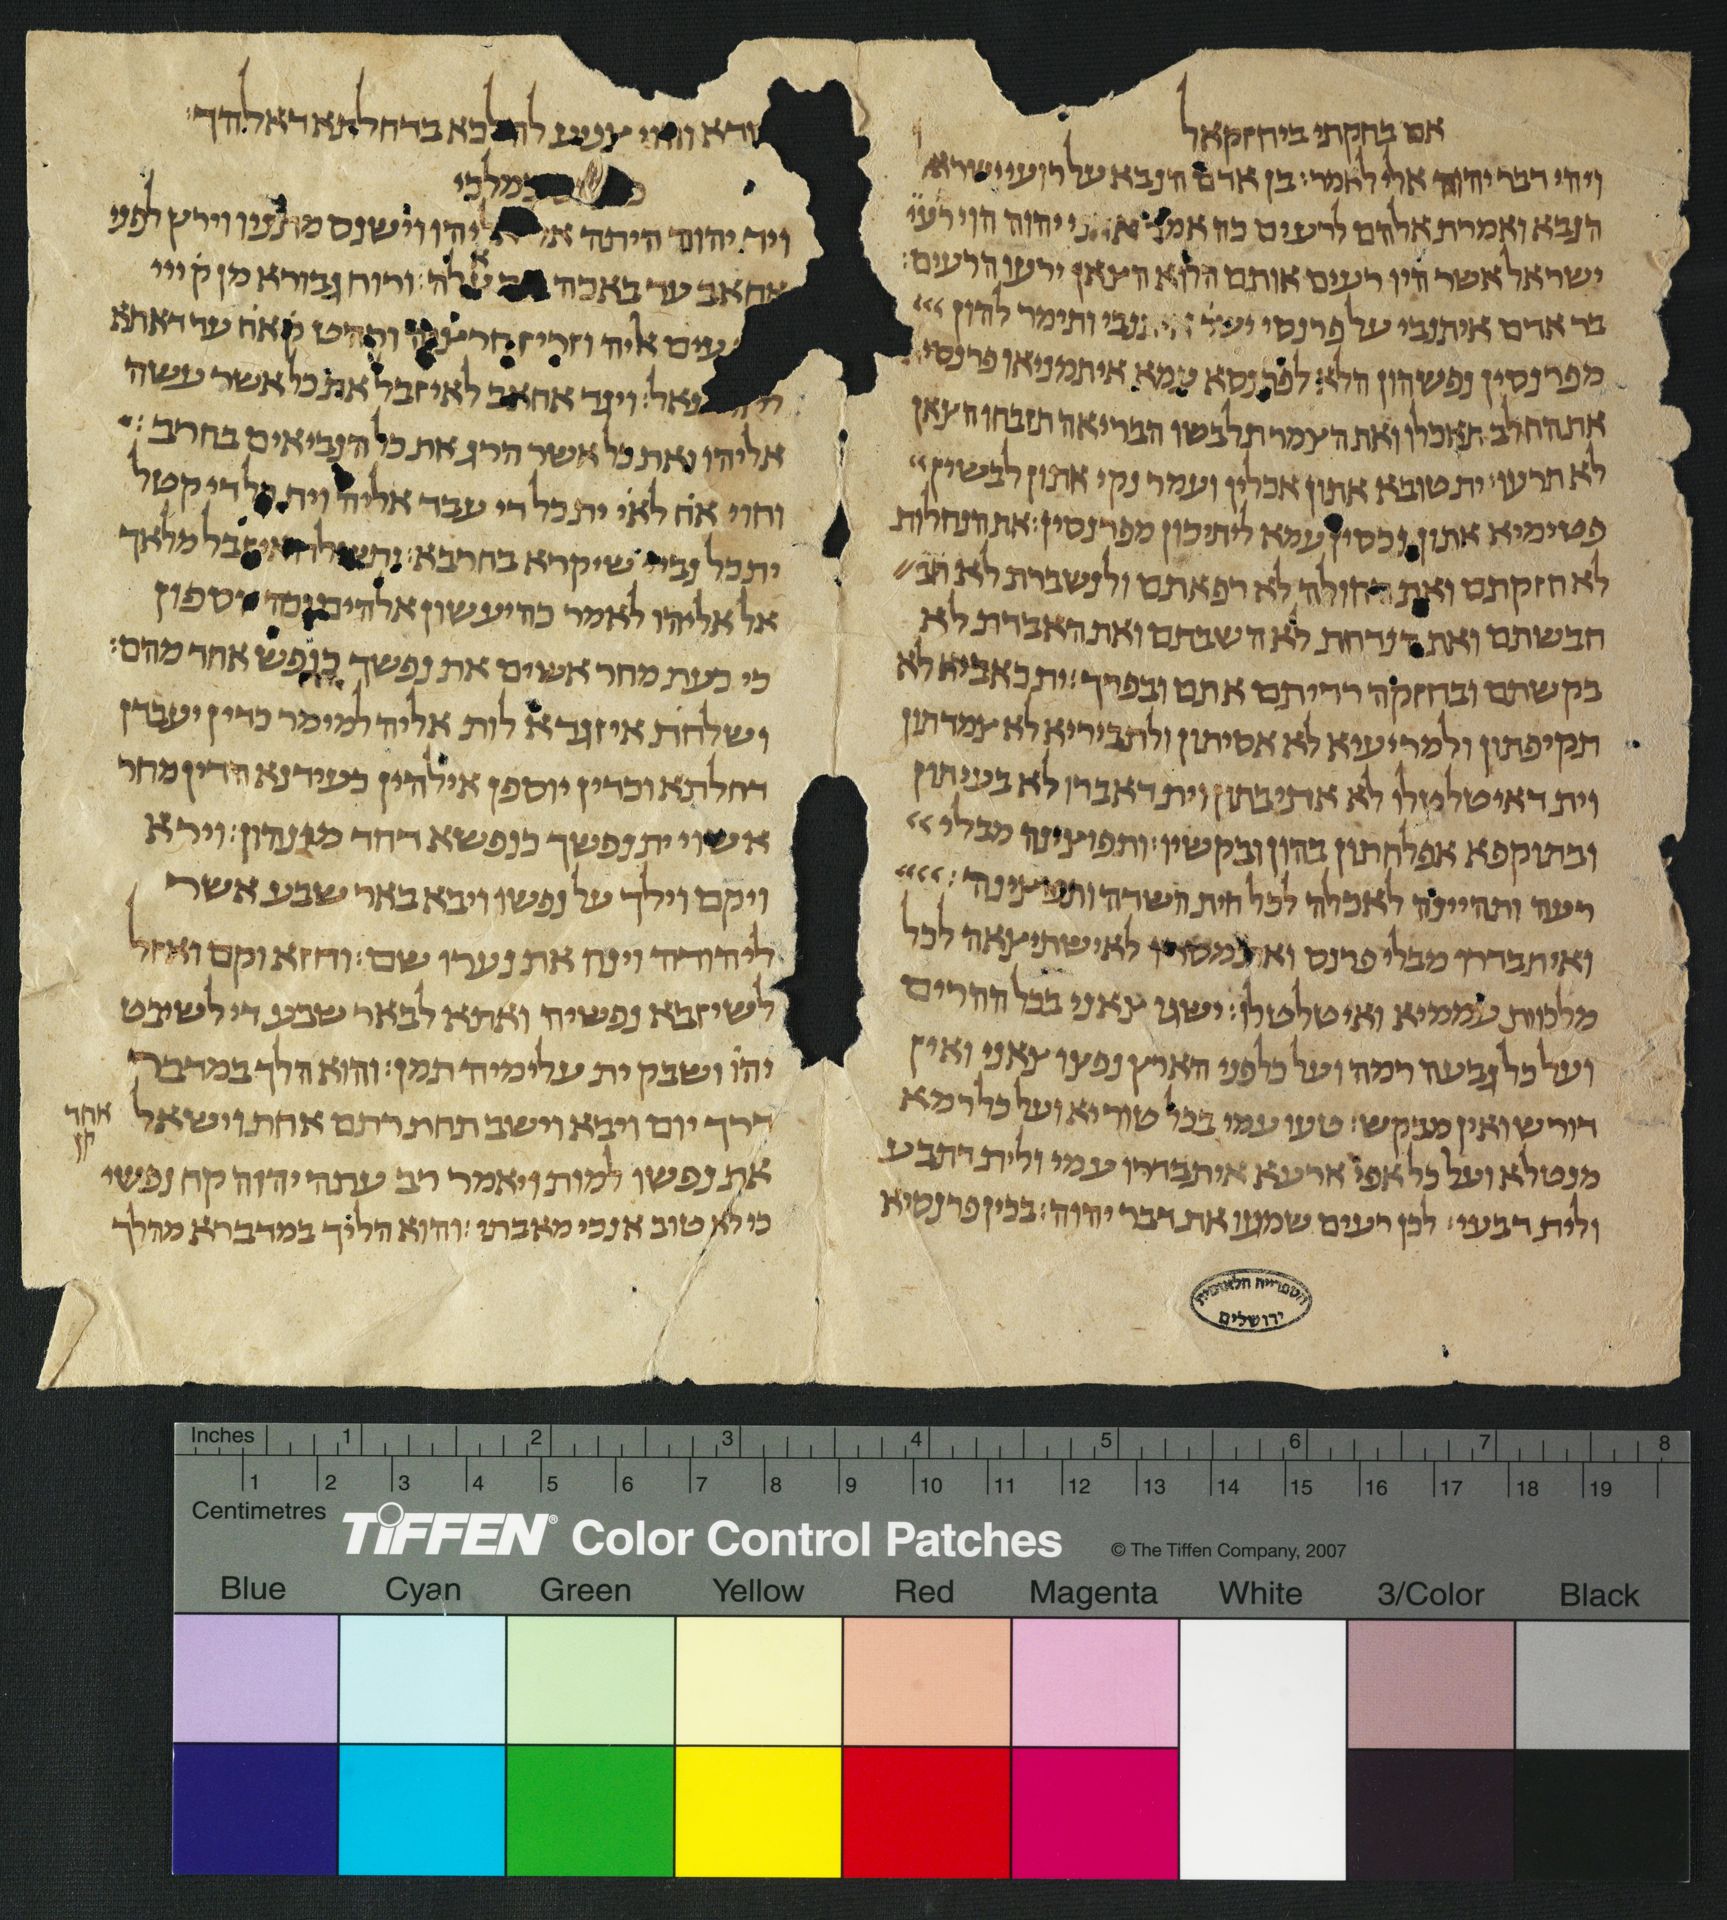 אם בחקתי ביחזקאל
ויהי דבר יהוה אלי לאמר: בן אדם הנבא על רועי ישרא
הנבא ואמרת אלהם לרעים כה אמר יהוה הוי רעי
ישראל אשר היו רעים אותם הלוא הצאן ירעו הרעים:
בר אדם איתנבי על פרנסי ותימר להון
מפרנסין נפשהון הלא לפרנסא עמא איתמניאו פרנסי
את החלב תאכלו ואת הצמר תלבשו הבריאה תזבחו הצאן
לא תרעו: ית טובא אתון אכלין ועמר נקי אתון לבשין
פטימיא אתון נכסין עמא ליתיכון מפרנסין: את הנחלות
לא חזקתם ואת החולה לא רפאתם ולנשברת לא חב
חבשתם ואת הנדחת לא השבתם ואת האבדת לא
בקשתם ובחזקה רדיתם אתם ובפרך: ית כאביא לא
תקיפתון ולמריעיא לא אסיתון ולתביריא לא צמדתון
וית דאיטלטלו לא אתיבתון וית דאברו לא בעיתון
ובתוקפא אפלחתון בהון ובקשיו: ותפוצינה מבלי
רעה ותהיינה לאכלה לכל חית השדה ותפוצינה:
ואיתבדרו מבלי פרנס ואתמסרו לאישתיצאה לכל
מלכות עממיא ואיטלטלו: ישגו צאני בכל ההרים
ועל כל גבעה רמה ועל כל פני הארץ נפצו צאני ואין
דורש ואין מבקש: טעו עמי בכל טוריא ועל כל רמא
מנטלא ועל כל אפי ארעא איתבדרו עמי ולית דתבע
ולית דבעי: לכן רעים שמעו את דבר יהוה: בכין פרנסיא
הספרייה הלאומית
ירושלים
בדחלתא דאלהך:
במלכי
ויד יהוה היתה אל אליהו וישנס מתניו וירץ לפני
אחאב עד באכה ורוח גבורא מן ק ייי
עים איה וזריז חרציה ורהט ק אח עד דאתא
ויגד אחאב לאיזבל את כל אשר עשה
אליהו ואת כל אשר הרג את כל הנביאים בחרב:
וחוי אח לאי ית כל די עבד אליה וית כל די קטל
ית כל נביי שיקרא בחרבא: ותשלח איזבל מלאך
אל אליהו לאמר כה יעשון אלהים וכה יוספון
כי כעת מחר אשים את נפשך כנפש אחד מהם:
ושלחת איזגדא לות אליה למימר כדין יעבדן
דחלתא וכדין יוספן אילהין כעידנא הדין מחר
אשוי ית נפשך כנפשא דחד מנהון: וירא
ויקם וילך על נפשו ויבא באר שבע אשר
ליהודה וינח את נערו שם: וחזא וקם ואזל
לשיזבא נפשיה ואתא לבאר שבע די לשיבט
יהו ושבק ית עלימיה תמן: והוא הלך במדבר
דרך יום ויבא וישב תחת רתם אחת וישאל
אחד
את נפשו למות ויאמר רב עתה יהוה קח נפשי
כי לא טוב אנכי מאבתי: והוא הליך במדברא מהלך
Inches 1 2 3 4 5 6 7 8
1 2 3 4 5 6 7 8 9 10 11 12 13 14 15 16 17 18 19
Centimetres
TIFFEN® Color Control Patches © The Tiffen Company, 2007
Blue Cyan Green Yellow Red Magenta White 3/Color Black